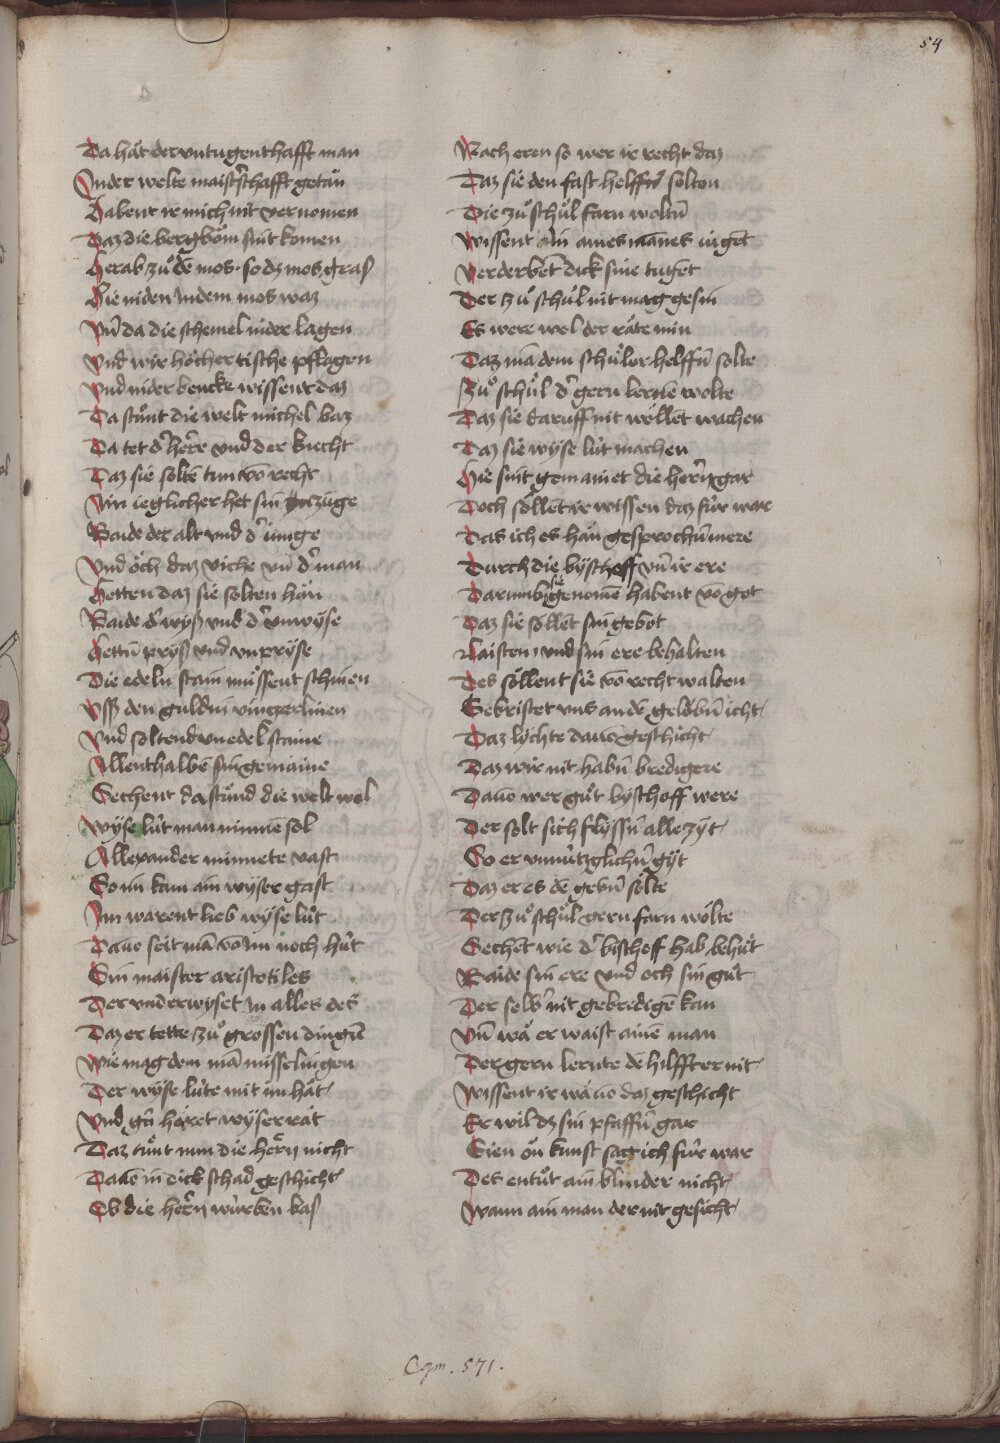 54
Da hät der vntugenthafft man
In der welte maistˢchafft getän
Habent ir mich nit vernomen
Daz die bergböm sint komen
Herab zuͦ dē mos · so dz mos graß
Hie niden in dem mos waz
Vn̄ da die schemel nider lagen
Vnd wir höcher tische pflagen
Vnd nider bencke wissent daz
Da stuͦnt die welt michel baz
Da tet dˢ herre vnd der knecht
Daz sie soltē tun vō recht
Ain ieglicher het sin gezüge
Baide der alt vnd dˢ iunge
Vnd och daz viche vn̄ dˢ man
Hetten daz sie solten hän
Baide dˢ wyß vnd dˢ vnwyse
Hettn̄ pryß vnd vnpryse
Die edeln stain muͦssent schinen
Vsß den guldin vingerlinen
Vnd soltend vnedel staine
Allenthalbē sin gemaine
Sechent da stuͦnd die welt wol
Wyse lüt man minnē sol
Allexander minnete vast
So im kam ain wyser gast
Im warent lieb wyse lüt
Dauō seit mā vō im noch hüt
Sin maister aristotiles
Der vnderwyset in alles des
Daz er tette zuͦ grossen dingn̄
Wie mag dem mā misselingen
Der wyse lüte mit im hät
Vnd gn̄ höret wyser rät
Daz tuͦnt nun die herrn nicht
Dauō in dick schad geschicht
Ob die herrn würben baß
Nach eren so wer ir recht daz
Daz sie den fast helffn̄ solton
Die zuͦ schuͦl farn woltn̄
Wissent din aines mānes iugēt
Verderbēt dick sine tugēt
Der zuͦ schuͦl nit mag gesin
Es were wol der räte min
Daz mā dem schuͦler helffn̄ solte
Zuͦ schuͦl dˢ gern lernē wolte
Daz sie daruff nit wöllēt wachen
Daz sie wyse lüt machen
Hie sint gemainet die herrn gar
Doch söllēt ir wissen daz für war
Das ich es hän gesprochn̄ mere
Durch die byschoff vn̄ ir ere
Darumb sie genomē habent vō got
Daz sie söllēt sin gebot
Laisten vnd sin ere behalten
Des söllent sie vō recht walten
Gebristet vns an dē geloͤbn̄ icht
Daz lychte dauō geschicht
Daz wir nit habn̄ bredigere
Dauō wer guͦt byschoff were
Der solt sich flyssn̄ alle zyt
So er vnnützglichn̄ gyt
Daz er es dē gebn̄ sölte
Der zuͦ schuͦl gern farn wölte
Sechēt wie dˢ bischoff hab behuͦt
Baide sin ere vnd och sin guͦt
Der selbˢ nit gebredigē kan
Vn̄ wä er waist ainē man
Der gern lernte dē hilfft er nit
Wissent ir wa uō daz geschicht
Er wil dz sin pfaffn̄ gar
Sien on kunst sag ich für war
Des entuͦt ain blinder nicht
Wann ain man der nit gesicht
Cgm. 571.